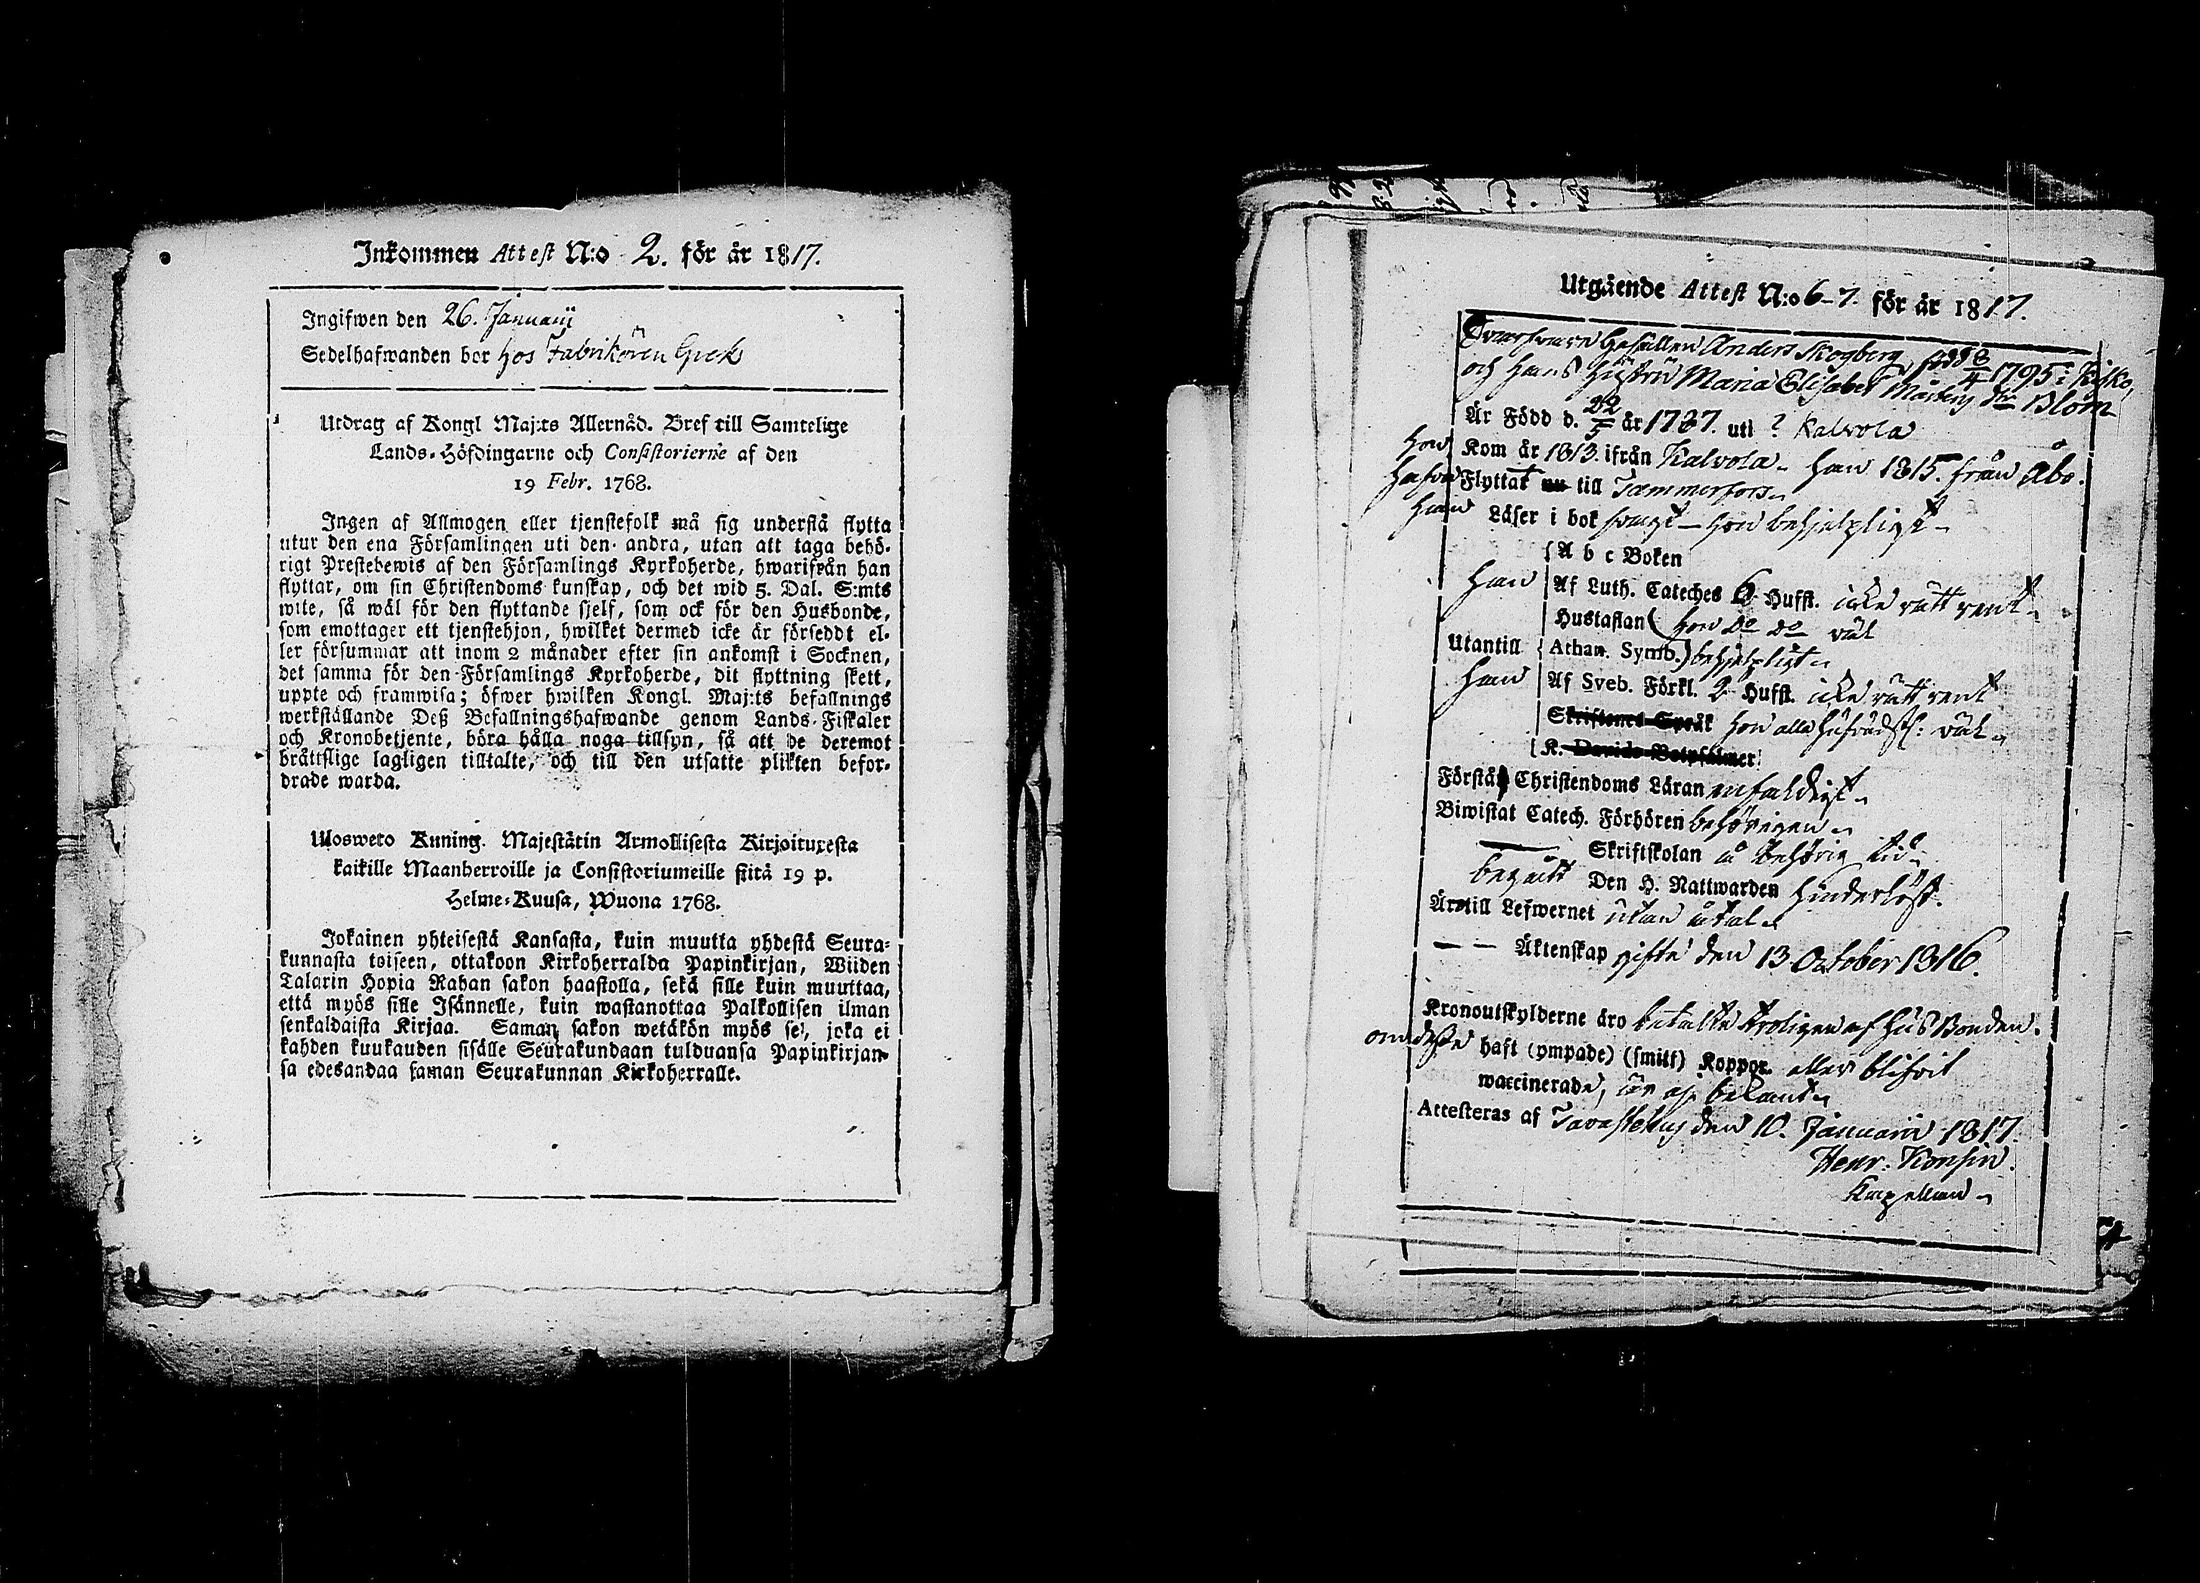 Inkommen Attest N:o 2. för år 1817.
Ingifwen den 26. Januarii
Sedelhafwanden bor hos Fabrikören
Utdrag af Kongl Maj:ts Allernåd. Bref till Samtelige
Lands-Höfdingarne och Consistorierne af den
19 Febr. 1768.
Ingen af Allmogen eller tjenstefolk må sig understå flytta
utur den ena Församlingen uti den andra, utan att taga behö-
rigt Prestebewis af den Församlings Kyrkoherde, hwarifrån han
flyttar, om sin Christendoms kunskap, och det wid 5. Dal. S:mts
wite, så wäl för den flyttande sjelf, som ock för den Husbonde,
som emottager ett tjenstehjon, hwilket dermed icke är försedt el-
ler försummar att inom 2 månader efter sin ankomst i Socknen,
det samma för den Församlings Kyrkoherde, dit flyttning skett,
uppte och framwisa; öfwer hwilken Kongl. Maj:ts befallnings
werkställande Deß Befallningshafwande genom Lands-Fiskaler
och Kronobetjente, böra hålla noga tillsyn, så att de deremot
bråttslige lagligen tilltalte, och till den utsatte plikten befor-
drade warda.
Ulosweto Kuning. Majestätin Armollisesta Kirjoituxesta
kaikille Maanherroille ja Consistoriumeille siitä 19 p.
Helme-Kuusa, Wuona 1768.
Jokainen yhteisestä Kansasta, kuin muutta yhdestä Seura-
kunnasta toiseen, ottakoon Kirkoherralda Papinkirjan, Wiiden
Talarin Hopia Rahan sakon haastolla, sekä sille kuin muuttaa,
että myös sille Isännelle, kuin wastanottaa Palkollisen ilman
senkaldaista Kirjaa. Saman sakon wetäkön myös se, joka ei
kahden kuukauden sisälle Seurakundaan tulduansa Papinkirjan-
sa edesandaa saman Seurakunnan Kirkoherralle.
Utgående Attest N:o 6-7. för år 1817.
Gesällen Anders Skogberg, född 8/4 1795 i Kisko,
och hans Hustru Maria Elisabet Blom
Är Född d. 22/5 år 1787. uti ? Kalvola
Hon Kom år 1813. ifrån Kalvola. han 1815. från Åbo.
Hafva Flyttat nu till Tammerfors
Han Läser i bok svagt - hon behjelpligt
A b c Boken
Han Af Luth. Cateches 6 Hufst. icke rätt rent
Hustaflan hon Do Do väl
Utantill Athan. Symb. behjelpligt
Han Af Sveb. Förkl. 2 Hufst. icke rätt rent
Skriftenes Språk hon alla hufvudst: väl
K. Davids Botpsalmer
Förstå Christendoms Läran enfaldigt
Biwistat Catech. Förhören behörigen
Skriftskolan å behörig tid
begått Den H. Nattwarden hinderlöst.
Äro till Lefwernet utan åtal
Äktenskap gifte den 13 October 1816.
Kronoutskylderne äro betalte troligen af Hus Bonden.
om desse haft (ympade) (smitt) Koppor. eller blifvit
waccinerade, är ej bekant
Attesteras af Tavastehus den 10. Januarii 1817.
Henr: Konsin.
Kapellan